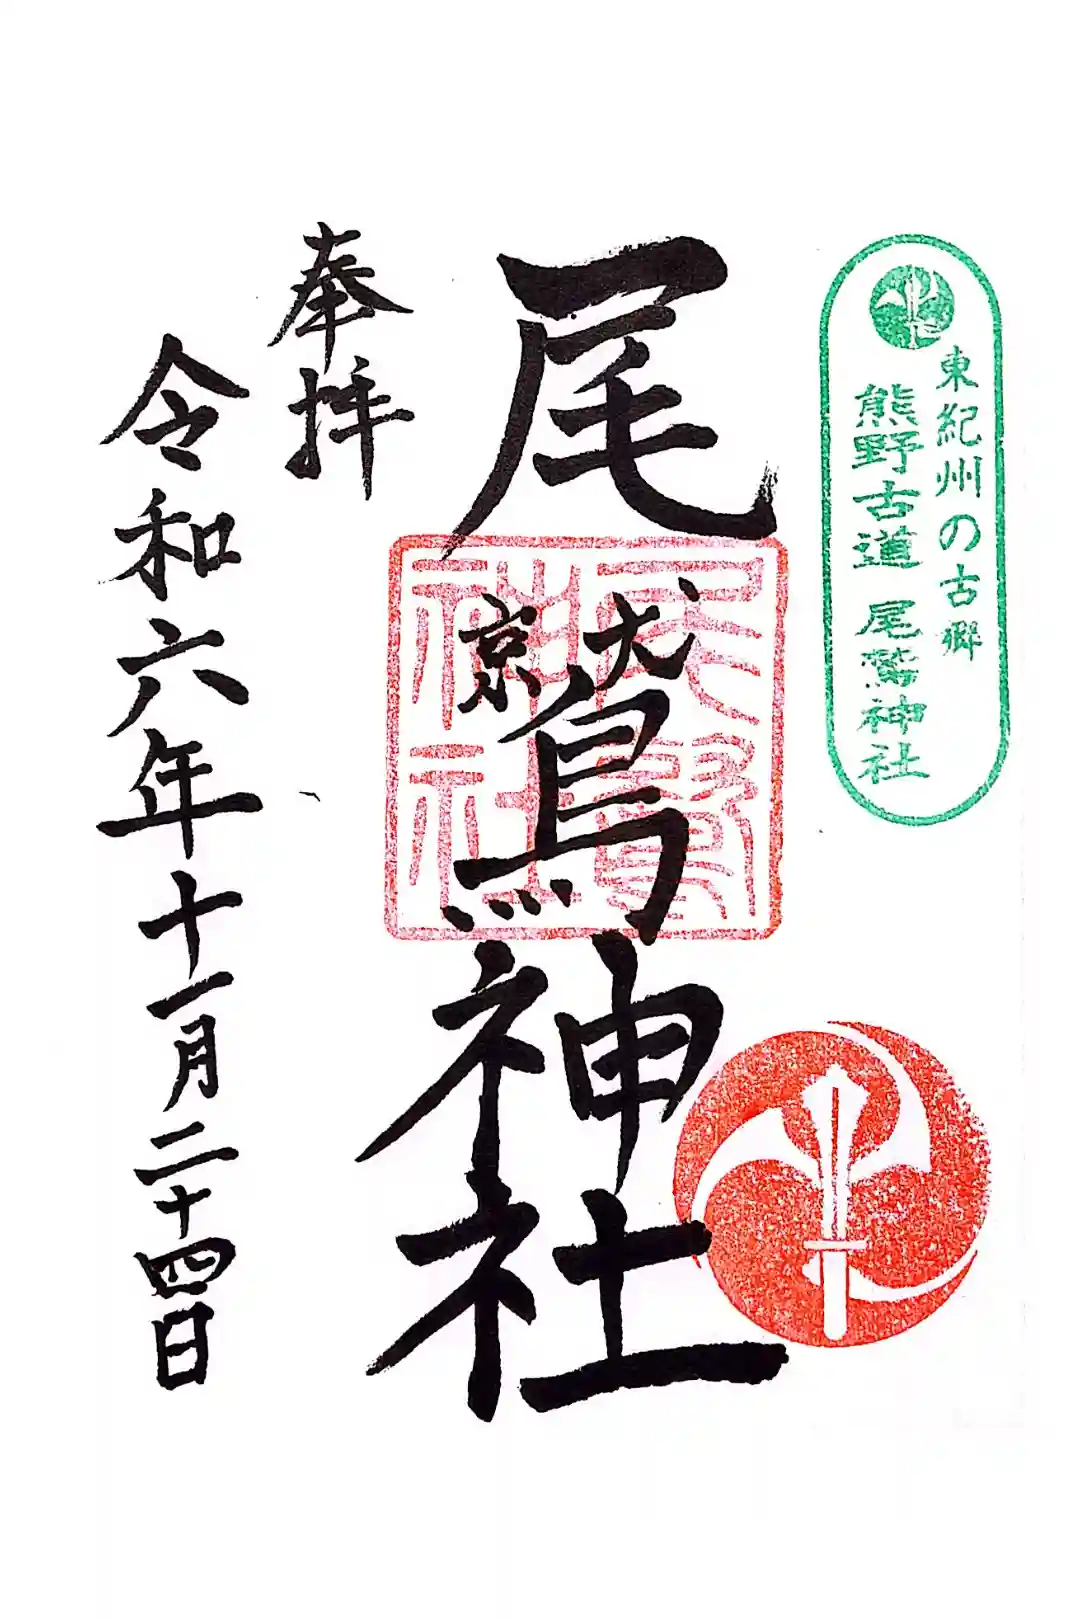 東紀州の古郷
熊野古道 尾鷲神社
尾鷲神社
尾鷲神社
奉拝
令和六年十一月二十四日